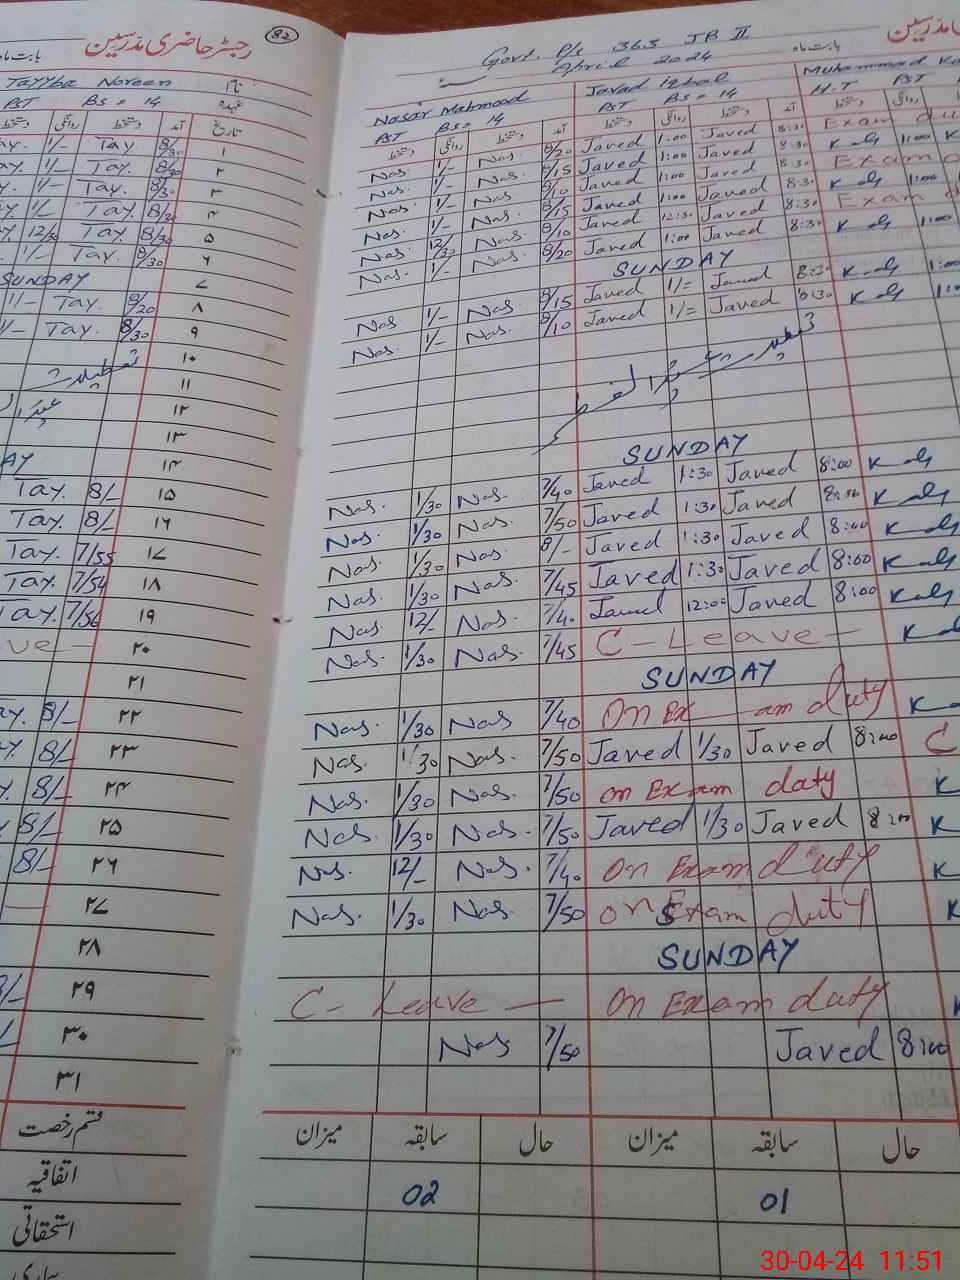 رجسٹر حاضری مدرسین
82
بابت ماہ
Tayyba Noreen
نام
PST Bs = 14
عہدہ
دستخط روانگی دستخط آمد تاریخ
1/- Tay 8/30 ۱
1/- Tay. 8/30 ۲
1/- Tay. 8/30 ۳
1/- Tay. 8/30 ۴
12/30 Tay. 8/30 ۵
1/- Tay. 8/30 ۶
SUNDAY ۷
1/- Tay. 8/20 ۸
1/- Tay. 8/30 ۹
تعطیلات ۱۰
۱۱
۱۲
۱۳
۱۴
Tay. 8/- ۱۵
Tay. 8/- ۱۶
Tay. 7/55 ۱۷
Tay. 7/54 ۱۸
Tay. 7/56 ۱۹
۲۰
۲۱
8/- ۲۲
8/- ۲۳
8/- ۲۴
8/- ۲۵
8/- ۲۶
۲۷
۲۸
۲۹
۳۰
۳۱
قسم رخصت
اتفاقیہ
استحقاقی
Govt. P/s 363 JB II
بابت ماہ
April 2024
Nasar Mahmood Javad Iqbal Muhammad
PST Bs = 14 PST Bs = 14 H.T
دستخط روانگی دستخط آمد دستخط روانگی دستخط آمد
Nas. 1/- Nas. 8/20 Javed 1:00 Javed 8:30 Exam
Nas. 1/- Nas. 8/15 Javed 1:00 Javed 8:30 1:00
Nas. 1/- Nas. 8/10 Javed 1:00 Javed 8:30 Exam
Nas. 1/- Nas. 8/15 Javed 1:00 Javed 8:30 1:00
Nas. 12/30 Nas. 8/10 Javed 12:30 Javed 8:30 Exam
Nas. 1/- Nas. 8/20 Javed 1:00 Javed 8:30 1:00
SUNDAY
Nas. 1/- Nas. 8/15 Javed 1/= Javed 8:30
Nas. 1/- Nas. 8/10 Javed 1/= Javed 8:30
تعطیلات عید الفطر
SUNDAY
Nas. 1/30 Nas. 7/40 Javed 1:30 Javed 8:00
Nas. 1/30 Nas. 7/50 Javed 1:30 Javed
Nas. 1/30 Nas. 8/- Javed 1:30 Javed 8:00
Nas. 1/30 Nas. 7/45 Javed 1:30 Javed 8:00
Nas. 12/- Nas. 7/40 Javed 12:00 Javed 8:00
Nas. 1/30 Nas. 7/45 C-Leave-
SUNDAY
Nas. 1/30 Nas 7/40 On Exam duty
Nas. 1/30 Nas. 7/50 Javed 1/30 Javed 8:00 C
Nas. 1/30 Nas. 7/50 on Exam duty
Nas. 1/30 Nas. 7/50 Javed 1/30 Javed 8:00
Nas. 12/- Nas. 7/40 On Exam duty
Nas. 1/30 Nas. 7/50 on Exam duty
SUNDAY
C- Leave — On Exam duty
Nas 7/50 Javed 8:00
میزان سابقہ حال میزان سابقہ حال
02 01
30-04-24 11:51